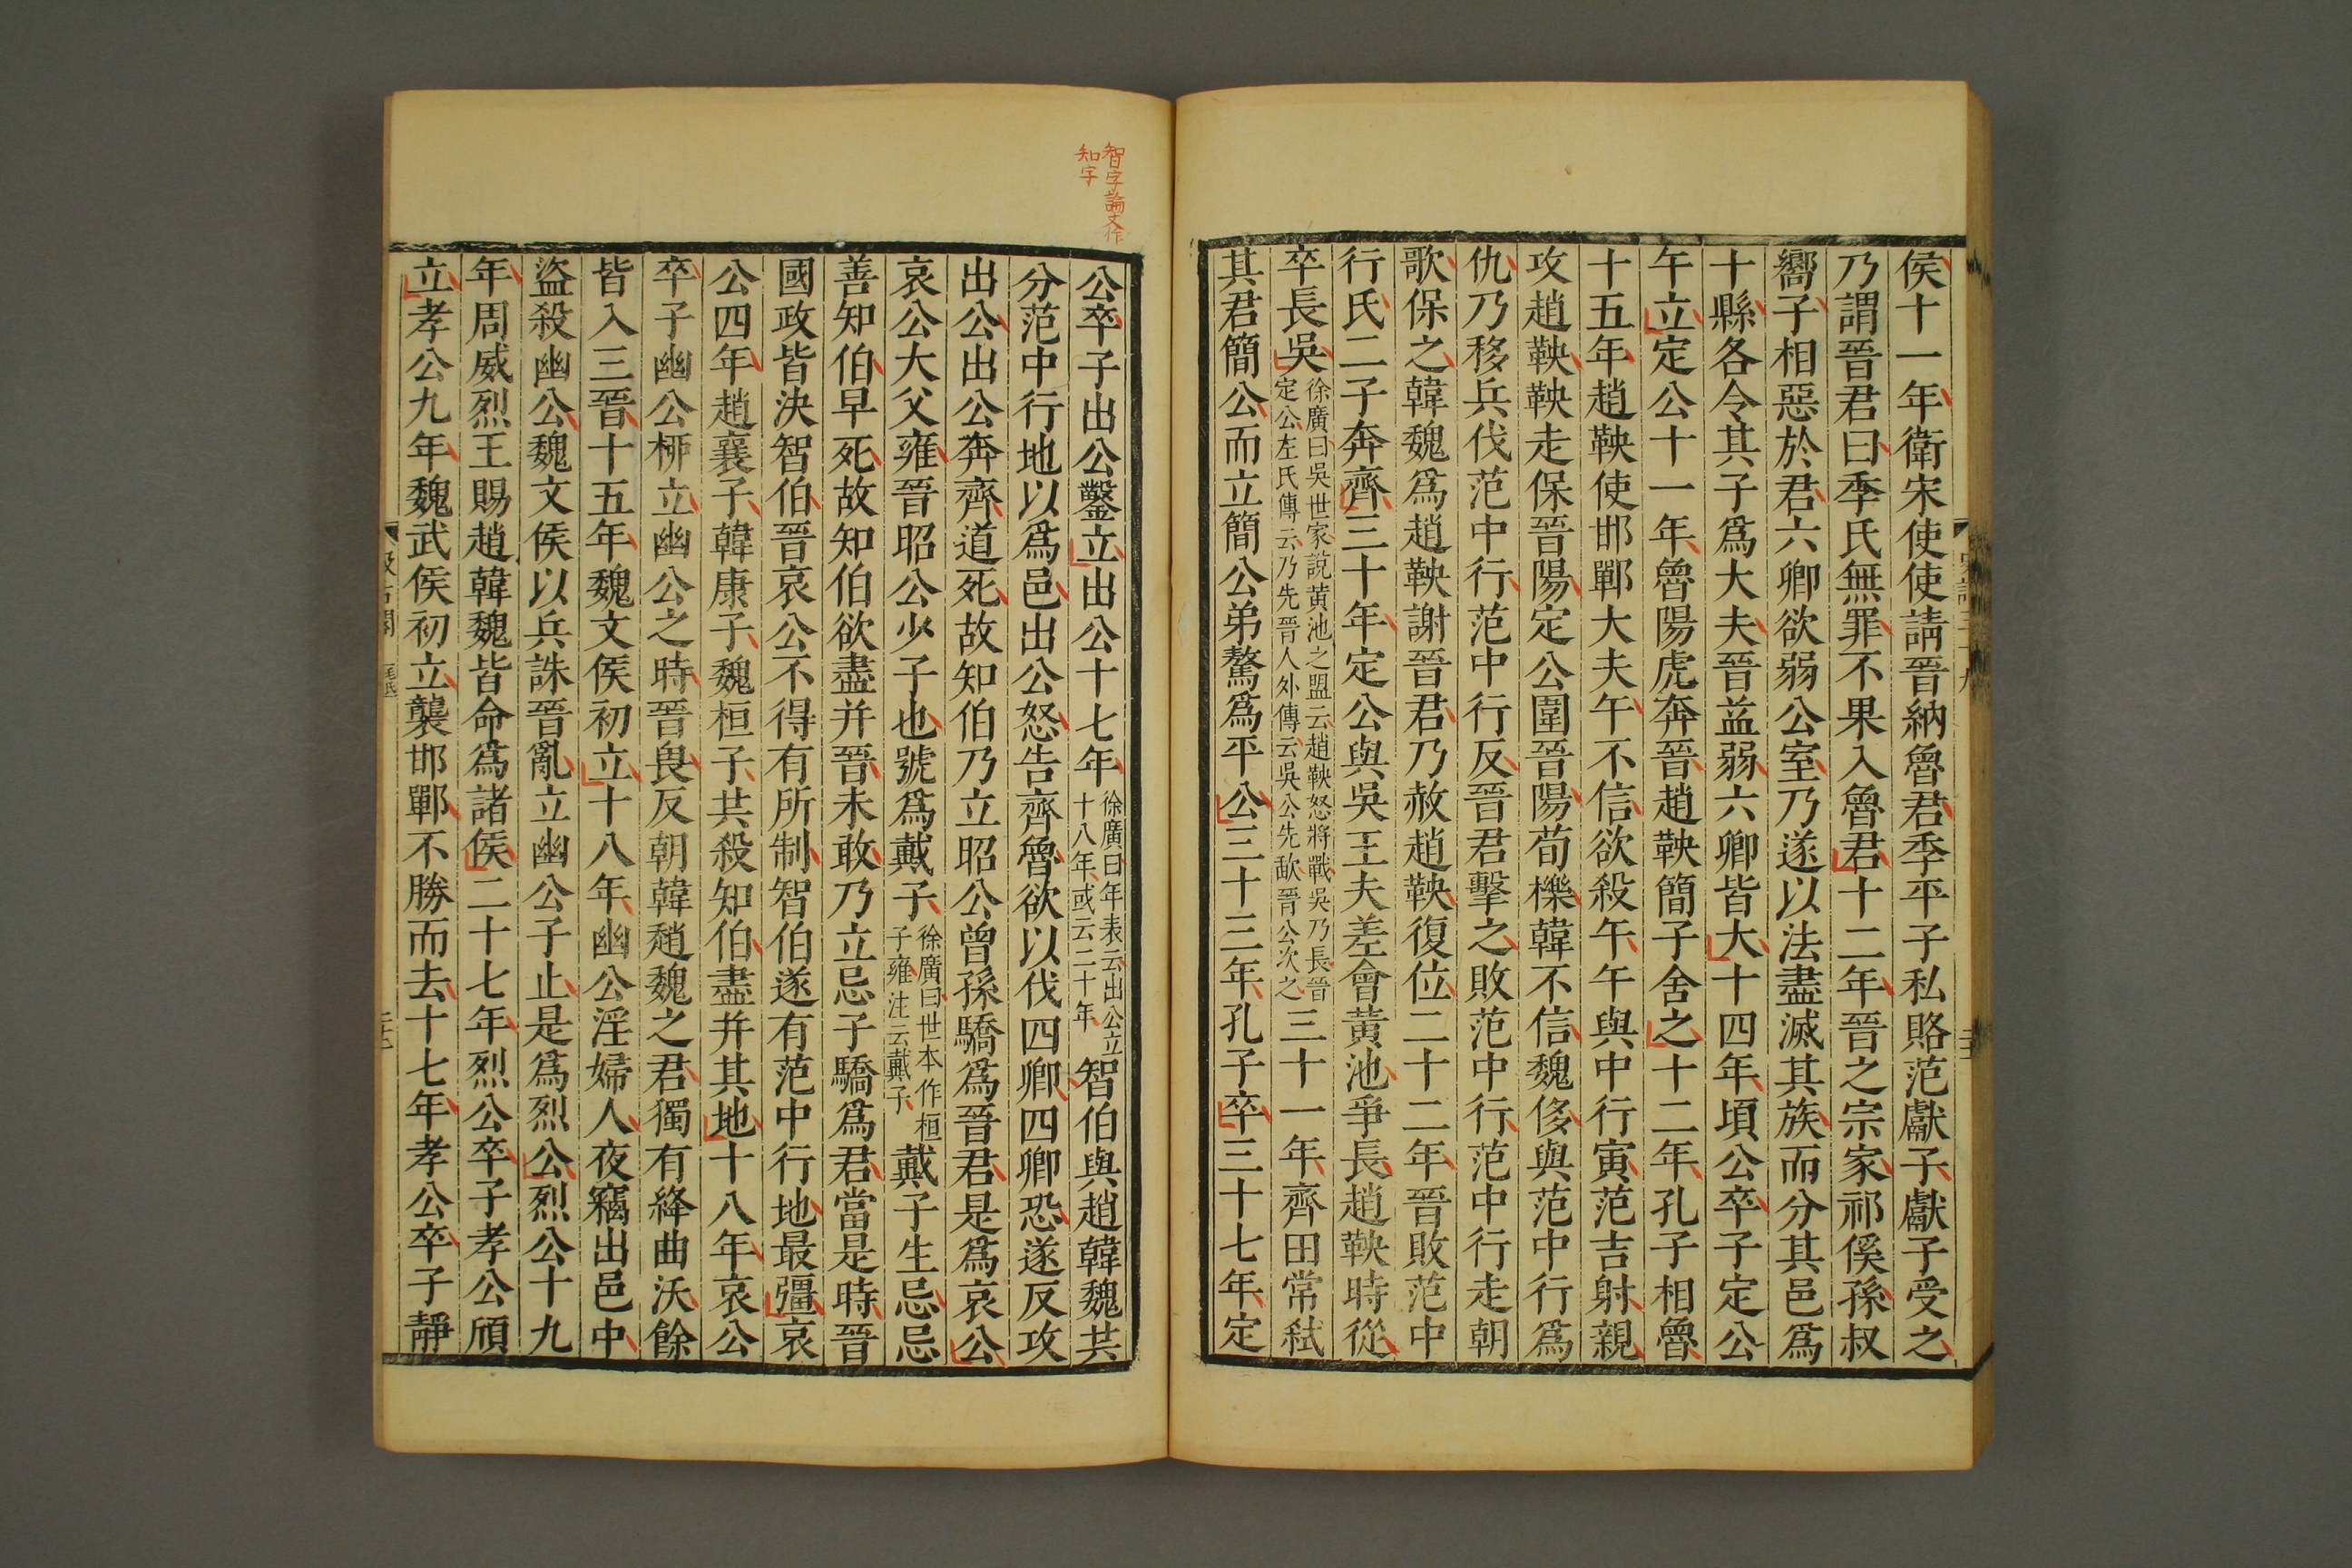 侯十一年衛宋使使請晉納魯君季平子私賂范獻子獻子受之
乃謂晉君曰季氏無罪不果入魯君十二年晉之宗家祁傒孫叔
嚮子相惡於君六卿欲弱公室乃遂以法盡滅其族而分其邑爲
十縣各令其子爲大夫晉益弱六卿皆大十四年頃公卒子定公
午立定公十一年魯陽虎奔晉趙鞅簡子舍之十二年孔子相魯
十五年趙鞅使邯鄲大夫午不信欲殺午午與中行寅范吉射親
攻趙鞅鞅走保晉陽定公圍晉陽荀櫟韓不信魏侈與范中行爲
仇乃移兵伐范中行范中行反晉君擊之敗范中行范中行走朝
歌保之韓魏爲趙鞅謝晉君乃赦趙鞅復位二十二年晉敗范中
行氏二子奔齊三十年定公與吳王夫差會黃池爭長趙鞅時從
卒長吳徐廣曰吳世家說黃池之盟云趙鞅怒將戰吳乃長晉定公左氏傳云乃先晉人外傳云吳公先歃晉公次之三十一年齊田常弒
其君簡公而立簡公弟驁爲平公三十三年孔子卒三十七年定
智字論文作
知字
公卒子出公鑿立出公十七年徐廣曰年表云出公立十八年或云二十年智伯與趙韓魏共
分范中行地以爲邑出公怒告齊魯欲以伐四卿四卿恐遂反攻
出公出公奔齊道死故知伯乃立昭公曾孫驕爲晉君是爲哀公
哀公大父雍晉昭公少子也號爲戴子徐廣曰世本作桓子雍注云戴子戴子生忌忌
善知伯早死故知伯欲盡并晉未敢乃立忌子驕爲君當是時晉
國政皆決智伯晉哀公不得有所制智伯遂有范中行地最彊哀
公四年趙襄子韓康子魏桓子共殺知伯盡并其地十八年哀公
卒子幽公柳立幽公之時晉畏反朝韓趙魏之君獨有絳曲沃餘
皆入三晉十五年魏文侯初立十八年幽公淫婦人夜竊出邑中
盜殺幽公魏文侯以兵誅晉亂立幽公子止是爲烈公烈公十九
年周威烈王賜趙韓魏皆命爲諸侯二十七年烈公卒子孝公頎
立孝公九年魏武侯初立襲邯鄲不勝而去十七年孝公卒子靜